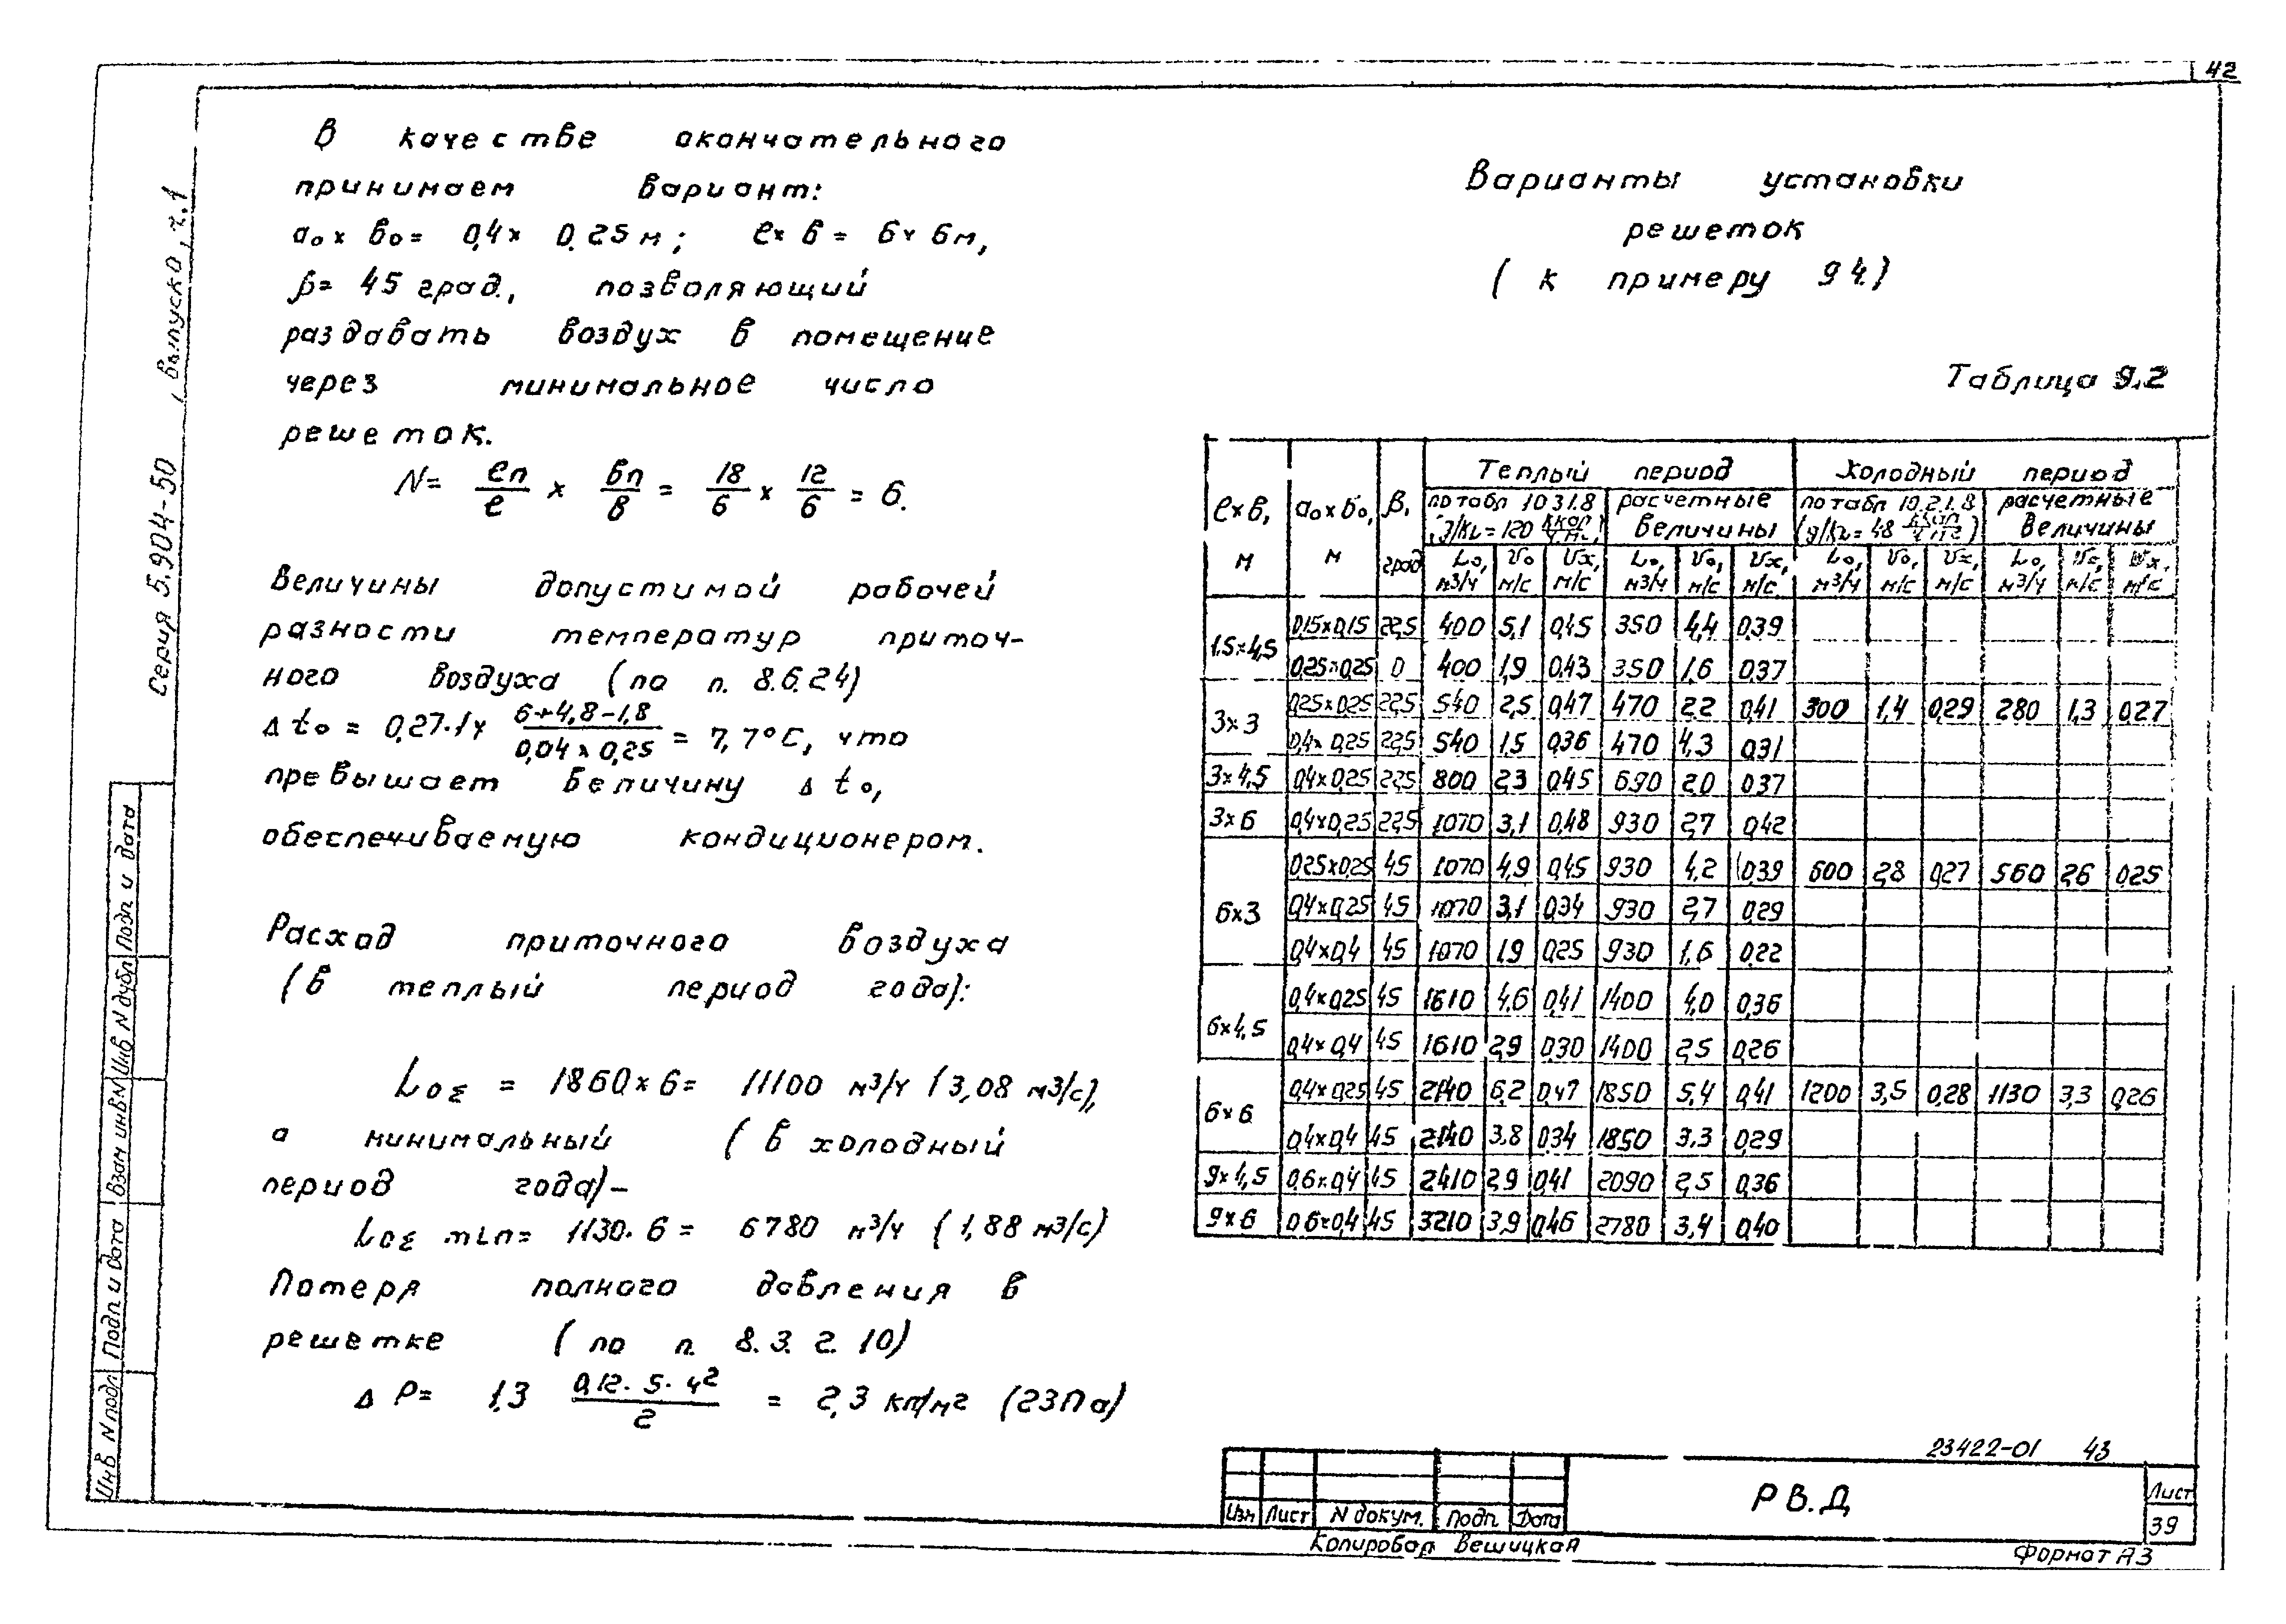 42
В качестве окончательного
принимаем вариант:
a₀ x b₀ = 0,4 x 0,25 м; ℓ x b = 6 x 6м,
β = 45 град., позволяющий
раздавать воздух в помещение
через минимальное число
решеток.
N = ℓп/ℓ x bп/b = 18/6 x 12/6 = 6.
Величины допустимой рабочей
разности температур приточ-
ного воздуха (по п. 8.6.24)
Δt₀ = 0,27·1 x (6+4,8-1,8)/(0,04 x 0,25) = 7,7°С, что
превышает величину Δt₀,
обеспечиваемую кондиционером.
Расход приточного воздуха
(в теплый период года):
L₀Σ = 1860 x 6 = 11100 м³/ч (3,08 м³/с),
а минимальный (в холодный
период года)-
L₀Σ min = 1130·6 = 6780 м³/ч (1,88 м³/с)
Потеря полного давления в
решетке (по п. 8.3.2.10)
ΔP = 1.3 0,12·5·4²/2 = 2,3 кп/м2 (23Па)
Варианты установки
решеток
(к примеру 9 4.)
Таблица 9.2
ℓ x b, м | a₀ x b₀, м | β, град | Теплый период | Холодный период
по табл 10 3.1.8 | расчетные величины | по табл 10.2.1.8 | расчетные величины
L₀, м³/ч | v₀ м/с | vx, м/с | L₀, м³/ч | v₀, м/с | vx, м/с | L₀, м³/ч | v₀, м/с | vx, м/с | L₀, м³/ч | v₀, м/с | vx, м/с
1.5 x 4,5 | 0,15 x 0,15 | 22,5 | 400 | 5,1 | 0,45 | 350 | 4,4 | 0,39
0,25 x 0,25 | 0 | 400 | 1,9 | 0,43 | 350 | 1,6 | 0,37
3 x 3 | 0,25 x 0,25 | 22,5 | 540 | 2,5 | 0,47 | 470 | 2,2 | 0,41 | 300 | 1,4 | 0,29 | 280 | 1,3 | 0,27
0,4 x 0,25 | 22,5 | 540 | 1,5 | 0,36 | 470 | 4,3 | 0,31
3 x 4,5 | 0,4 x 0,25 | 22,5 | 800 | 2,3 | 0,45 | 690 | 2,0 | 0,37
3 x 6 | 0,4 x 0,25 | 22,5 | 1070 | 3,1 | 0,48 | 930 | 2,7 | 0,42
6 x 3 | 0,25 x 0,25 | 45 | 1070 | 4,9 | 0,45 | 930 | 4,2 | 0,39 | 600 | 2,8 | 0,27 | 560 | 2,6 | 0,25
0,4 x 0,25 | 45 | 1070 | 3,1 | 0,34 | 930 | 2,7 | 0,29
0,4 x 0,4 | 45 | 1070 | 1,9 | 0,25 | 930 | 1,6 | 0,22
6 x 4,5 | 0,4 x 0,25 | 45 | 1610 | 4,6 | 0,41 | 1400 | 4,0 | 0,36
0,4 x 0,4 | 45 | 1610 | 2,9 | 0,30 | 1400 | 2,5 | 0,26
6 x 6 | 0,4 x 0,25 | 45 | 2140 | 6,2 | 0,47 | 1850 | 5,4 | 0,41 | 1200 | 3,5 | 0,28 | 1130 | 3,3 | 0,26
0,4 x 0,4 | 45 | 2140 | 3,8 | 0,34 | 1850 | 3.3 | 0,29
9 x 4,5 | 0,6 x 0,4 | 45 | 2410 | 2,9 | 0,41 | 2090 | 2,5 | 0,36
9 x 6 | 0,6 x 0,4 | 45 | 3210 | 3,9 | 0,46 | 2780 | 3,4 | 0,40
23422-01 43
РВ.Д
Лист
39
Изм Лист N докум. Подп Дата
Копировал Вешицкая
Формат А3
Серия 5.904-50 выпуск 0, ч.1
Инв N подл Подп и дата Взам инв N Инв N дубл Подп и дата